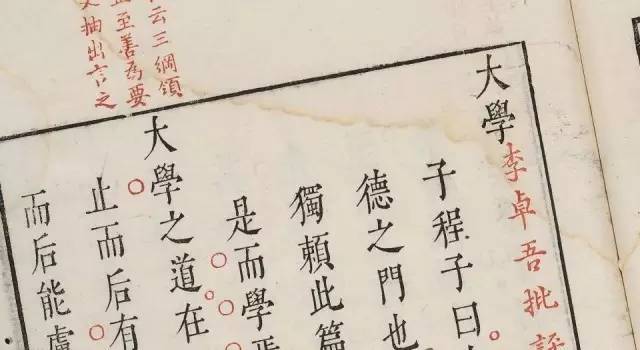 云三綱領
至善為要
抽出言之
大學 李卓吾批
子程子曰
德之門也
獨賴此篇
是而學焉
大學之道在
止而后有
而后能慮